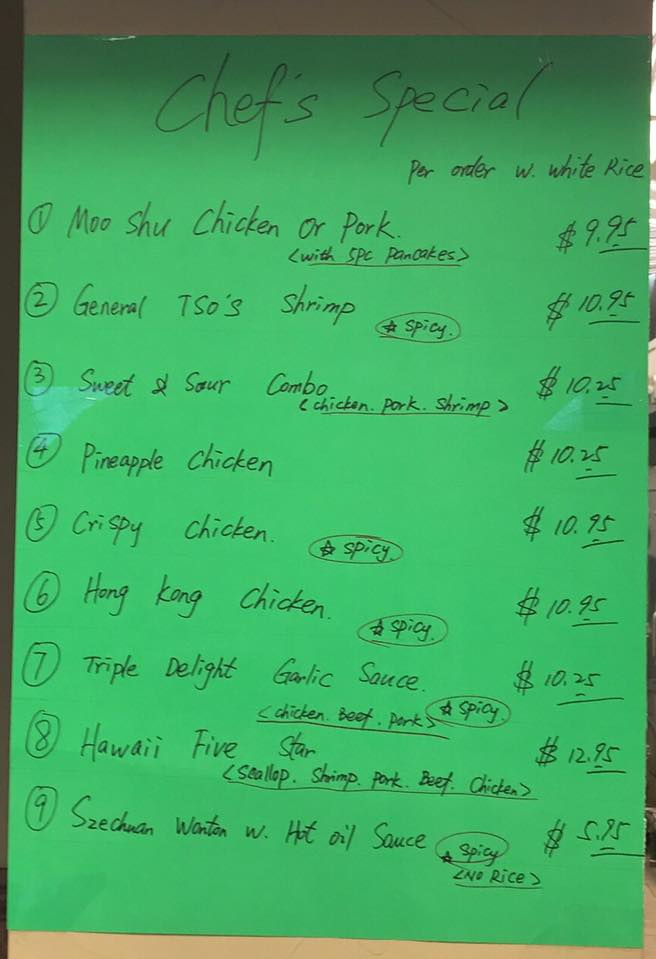 Chef's Special
Per order w. white Rice
① Moo shu Chicken or Pork. $9.95
<with 5pc Pancakes>
② General TSO'S Shrimp $10.95
☆ spicy.
③ Sweet & Sour Combo $10.25
<chicken. pork. shrimp>
④ Pineapple Chicken $10.25
⑤ Crispy chicken. $10.95
☆ spicy.
⑥ Hong Kong Chicken. $10.95
☆ spicy.
⑦ Triple Delight Garlic Sauce. $10.25
<chicken. Beef. pork> ☆ spicy.
⑧ Hawaii Five Star $12.95
<Scallop. Shrimp. pork. Beef. Chicken>
⑨ Szechuan Wonton w. Hot oil Sauce $5.95
☆ spicy
<NO Rice>